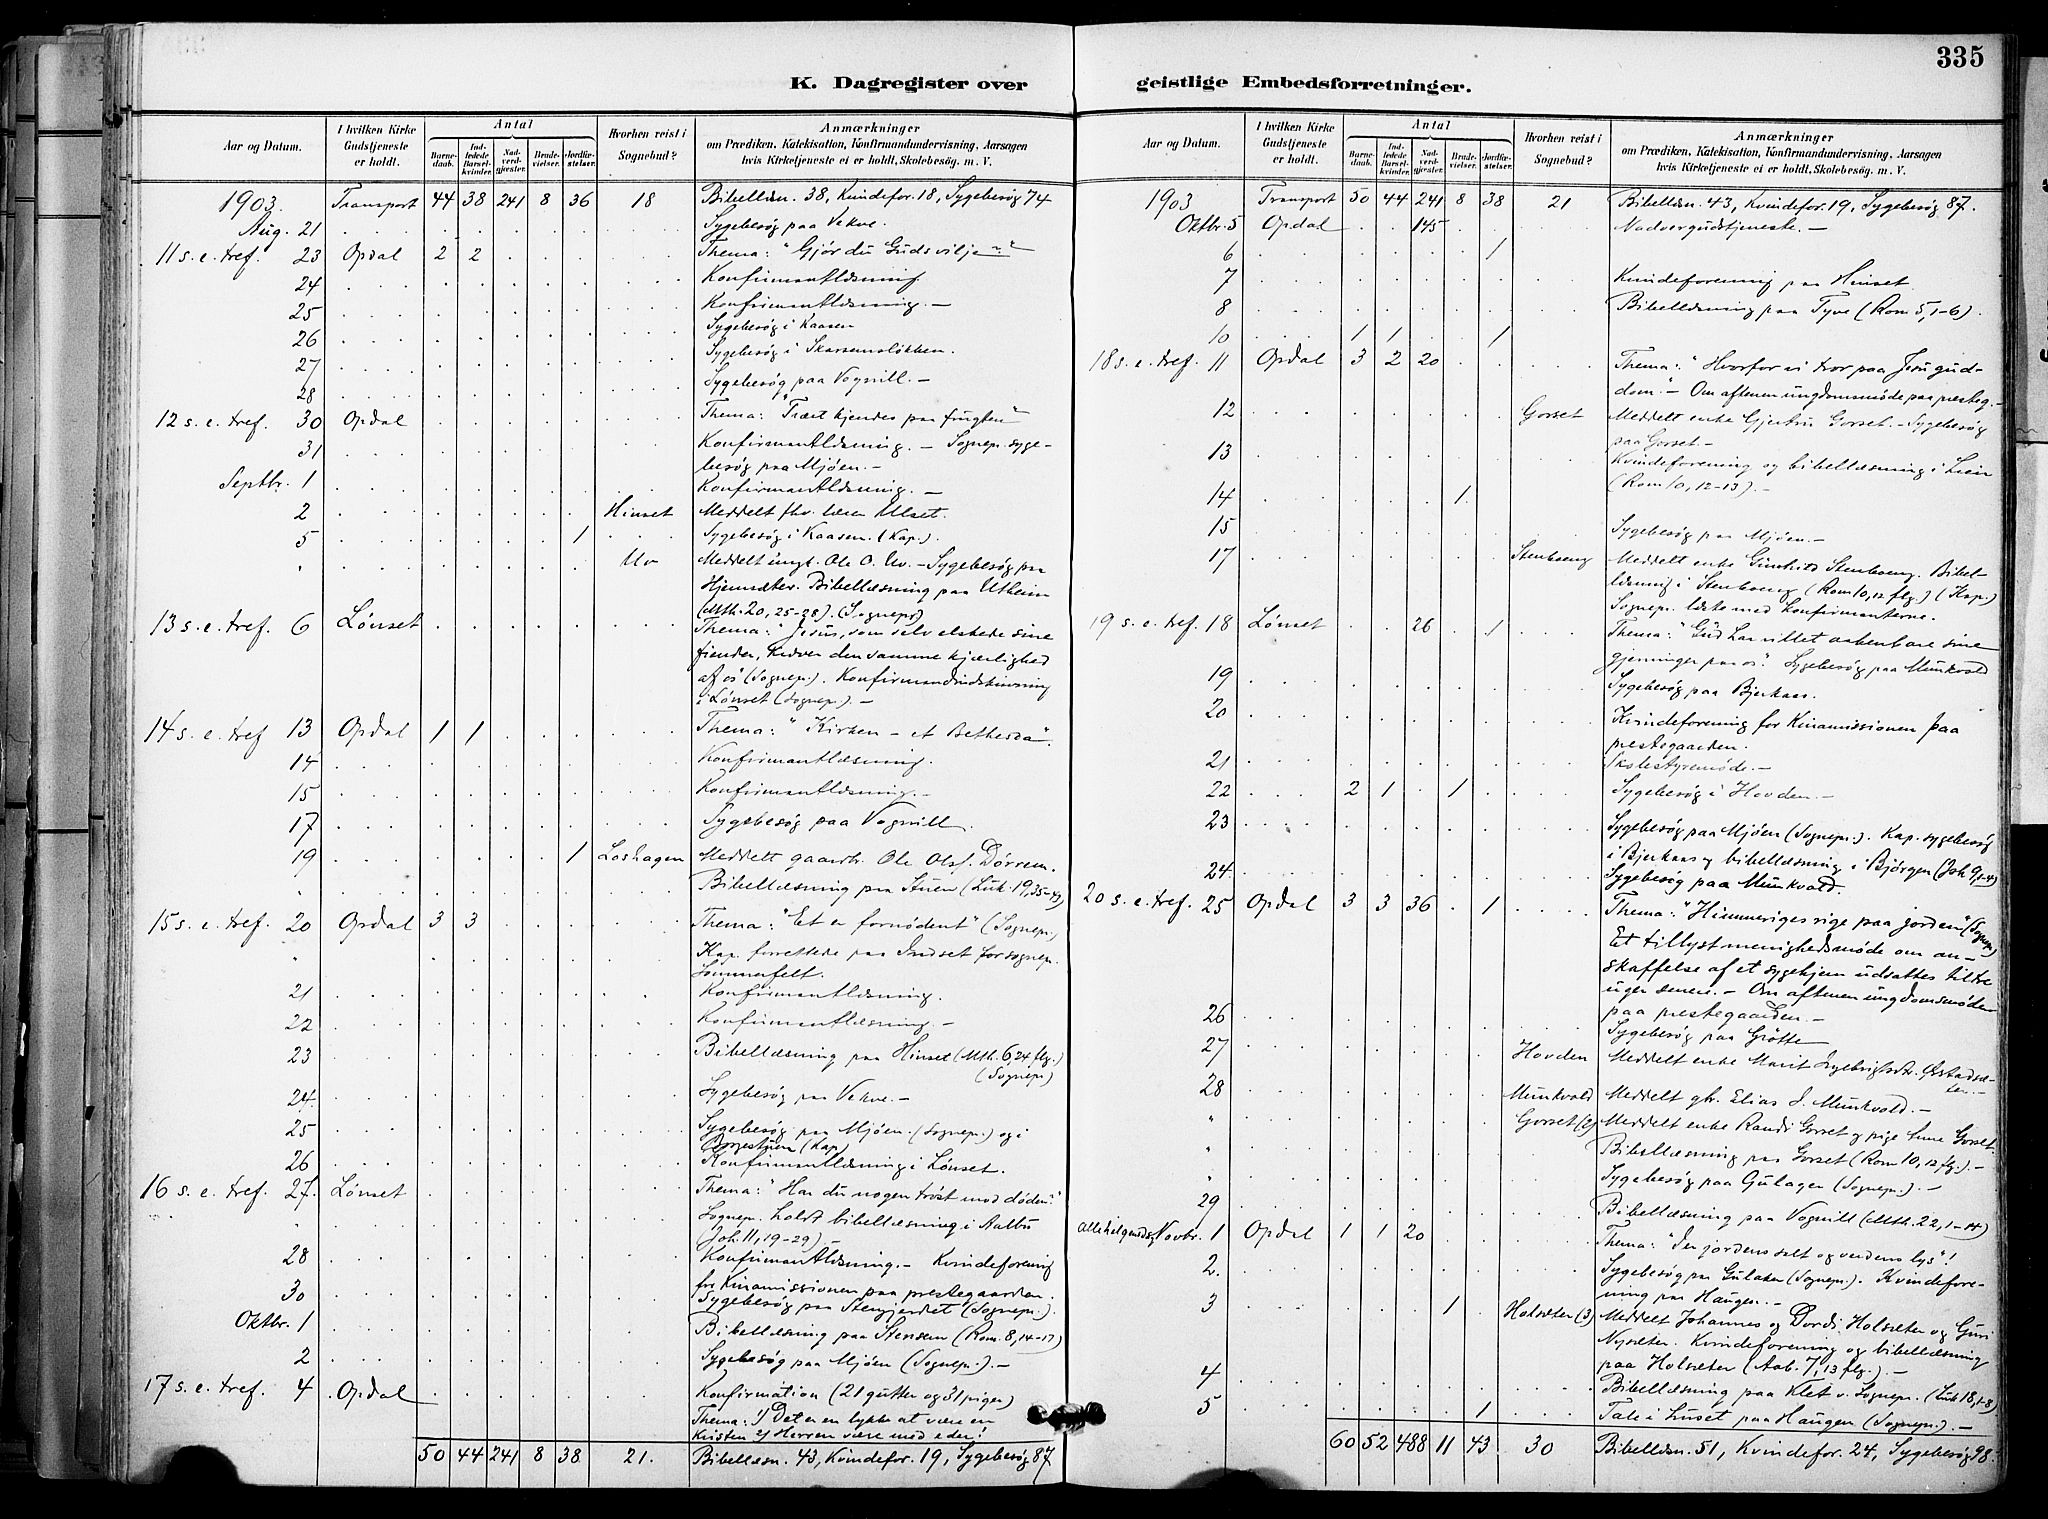 335
K. Dagregister over
Aar og Datum.
I hvilken Kirke Gudstjeneste er holdt.
Antal
Barnedaab.
Indledede Barselkvinder.
Nadverdgjester.
Brudevielser.
Jordfæstelser.
Hvorhen reist i Sognebud?
Anmærkninger
om Prædiken, Katekisation, Konfirmandundervisning, Aarsagen
hvis Kirketjeneste ei er holdt, Skolebesøg. m. V.
1903. Transport 44 38 241 8 36 18 Bibellæsn. 38, Kvindefor. 18, Sygebesög 74
Aug. 21 Sygebesög paa Vekve.
11 s. e. tref. 23 Opdal 2 2 Thema: "Gjör du Guds vilje?"
24 Konfirmantlæsning
25 Konfirmantlæsning. –
26 Sygebesög i Kaasen
27 Sygebesög i Skarsemslökken.
28 Sygebesög paa Vognill. –
12 s. e. tref. 30 Opdal Thema: "Træet kjendes paa frugten"
31 Konfirmantlæsning. – Sognep. syge-
besög paa Mjöen. –
Septbr. 1 Konfirmantlæsning. –
2 Hinset Meddelt fhv. lærer Ulset.
5 1 Sygebesög i Kaasen. (Kap.).
" Uv Meddelt ungk. Ole O. Uv. – Sygebesög paa
Bibellæsning paa Utheim
(Mth. 20, 25-28). (Sognepr)
13 s. e. tref. 6 Lönset Thema: "Jesus, som selv elskede sine
fiender, kræver den samme kjærlighed
af os" (Sognep.). Konfirmandindskrivning
i Lönset (Sognep.). –
14 s. e. tref 13 Opdal 1 1 Thema: "Kirken – et Bethesda".
14 Konfirmantlæsning.
15 Konfirmantlæsning. –
17 Sygebesög paa Vognill.
19 1 Loshagen Meddelt gaardbr. Ole Olsf. Dörrem.
" Bibellæsning paa Stuen (Luk. 19, 35-43)
15 s. e. tref. 20 Opdal 3 3 Thema: "Et er fornödent" (Sognep.)
" Kap. forrettede paa Indset for sognep.
Sommerfelt.
21 Konfirmantlæsning.
22 Konfirmantlæsning. –
23 Bibellæsning paa Hinset (Mth. 6 24 flg.)
(Sognep.)
24. Sygebesög paa Vekve. –
25 Sygebesög paa Mjöen. (Sognep.) og i
(Kap.
26 Konfirmantlæsning i Lönset.
16 s. e. tref. 27. Lönset Thema: "Har du nogen tröst mod döden?"
" Sognep. holdt bibellæsning i Aalbu
(Joh. 11, 19-29) –
28 Konfirmantlæsning. – Kvindeforening
for Kinamissionen paa prestegaarden.
30 Sygebesög paa Stengjerdet (Sognep.).
Oktbr. 1 Bibellæsning paa Stensem (Rom. 8, 14-17)
2 Sygebesög paa Mjöen (Sognep.). –
17 s. e. tref. 4 Opdal Konfirmation (21 gutter og 31 piger)
Thema: 1) Det er en lykke at være en
Kristen 2) Herren være med eder!
50 44 241 8 38 21. Bibellæsn. 43, Kvindefor. 19, Sygebesög 87
geistlige Embedsforretninger.
Aar og Datum.
I hvilken Kirke Gudstjeneste er holdt.
Antal
Barnedaab.
Indledede Barselkvinder.
Nadverdgjester.
Brudevielser.
Jordfæstelser.
Hvorhen reist i Sognebud?
Anmærkninger
om Prædiken, Katekisation, Konfirmandundervisning, Aarsagen
hvis Kirketjeneste ei er holdt, Skolebesøg. m. V.
1903 Transport 50 44 241 8 38 21 Bibellæsn. 43, Kvindefor. 19, Sygebesög 87.
Oktbr. 5 Opdal 145 Nadvergudstjeneste. –
6 1
7 Kvindeforening paa Hinset
8 Bibellæsning paa Tyve (Rom 5, 1-6).
10 1 1 1
18 s. e. tref. 11 Opdal 3 2 20 Thema: "Hvorfor vi tror paa Jesu gud-
dom." – Om aftenen ungdomsmöde paa presteg. –
12 Gorset Meddelt enke Gjertru Gorset. – Sygebesög
paa Gorset. –
13 Kvindeforening og bibellæsning i Lien
(Rom 10, 12-13). –
14 1
15 Sygebesög paa Mjöen. –
17 Stenboeng Meddelt enke Gunhild Stenboeng. Bibel-
læsning i Stenboeng (Rom 10, 12 flg.) (Kap.)
Sognep. læste med konfirmanterne.
19 s. e. tref. 18 Lönset 26 1 Thema: "Gud har villet aabenbare sine
gjerninger paa os". Sygebesög paa Munkvold
19 Sygebesög paa Bjerkaas.
20 Kvindeforening for Kinamissionen paa
prestegaarden.
21 Skolestyremöde. –
22 2 1 1 Sygebesög i Hovden. –
23 Sygebesög paa Mjöen (Sognep.). Kap. sygebesög
i Bjerkaas og bibellæsning i Björgen (Joh 9, 1-4)
24. Sygebesög paa Munkvold.
20 s. e. tref. 25 Opdal 3 3 36 1 Thema: "Himmeriges rige paa jorden" (Sognep.)
Et tillyst menighedsmöde om an-
skaffelse af et sygehjem udsattes til tre
uger senere. – Om aftenen ungdomsmöde
paa prestegaarden. –
26 Sygebesög paa Grötte
27 Hovden Meddelt enke Marit Ingebrigtsdtr. Östadsæ-
ter. –
28 Munkvold Meddelt gbr. Elias J. Munkvold. –
" Gorset (2) Meddelt enke Randi Gorset og pige Gorset.
" Bibellæsning paa Gorset (Rom 10, 12 flg.). –
" Sygebesög paa Gulager (Sognep.). –
29 Bibellæsning paa Vognill (Mth. 22, 1-14)
Allehelgensdag Novbr. 1 Opdal 1 1 20 Thema: "I er jordens salt og verdens lys"!
2. Sygebesög paa Gulaker (Sognep.). Kvindefore-
ning paa Haugen. –
3 1 Holsæter (3) Meddelt Johannes og Dordi Holsæter og Guri
Nysæter. Kvindeforening og bibellæsning
paa Holsæter (Aab. 7, 13 flg.). –
4 Bibellæsning paa Klet v. Sognep. (Luk 18, 1-8)
5 1 Tale i huset paa Haugen (Sognep.). –
60 52 488 11 43 30 Bibellæsn. 51, Kvindefor. 24, Sygebesög 98.